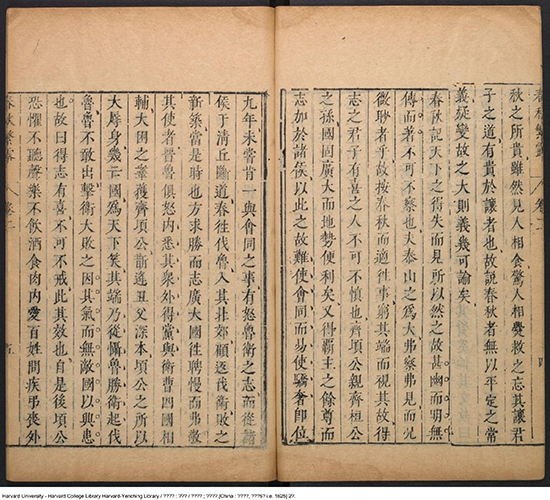 春秋繁露 卷二 四
秋之所貴雖然見人相食驚人相爨救之忘其讓君
子之道有貴於讓者也故說春秋者無以平定之常
義疑變故之大則義幾可諭矣
春秋記天下之得失而見所以然之故甚幽而明無
傳而著不可不察也夫泰山之爲大弗察弗見而況
微眇者乎故按春秋而適徃事窮其端而視其故得
志之君子有喜之人不可不慎也齊頃公親齊桓公
之孫國固廣大而地勢便利矣又得霸主之餘尊而
志加於諸侯以此之故難使會同而易使驕奢即位
九年未嘗肯一與會同之事有怒魯衛之志而從諸
侯于清丘斷道春徃伐魯入其北郊顧返伐衛敗之
新築當是時也方乘勝而志廣大國徃聘慢而弗敬
其使者晉魯俱怒內悉其衆外得黨與衛曹四國相
輔大困之鞌獲齊頃公斮逢丑父深本頃公之所以
大辱身幾亡國爲天下笑其端乃從懾魯勝衛起伐
魯魯不敢出擊衛大敗之因其氣而無敵國以興患
也故曰得志有喜不可不戒此其效也自是後頃公
恐懼不聽聲樂不飲酒食肉內愛百姓問疾弔喪外
春秋繁露 卷二 五
Harvard University - Harvard College Library Harvard-Yenching Library / ???? : ??? / ???? ; ????.[China : ????, ???5? i.e. 1625] 27.